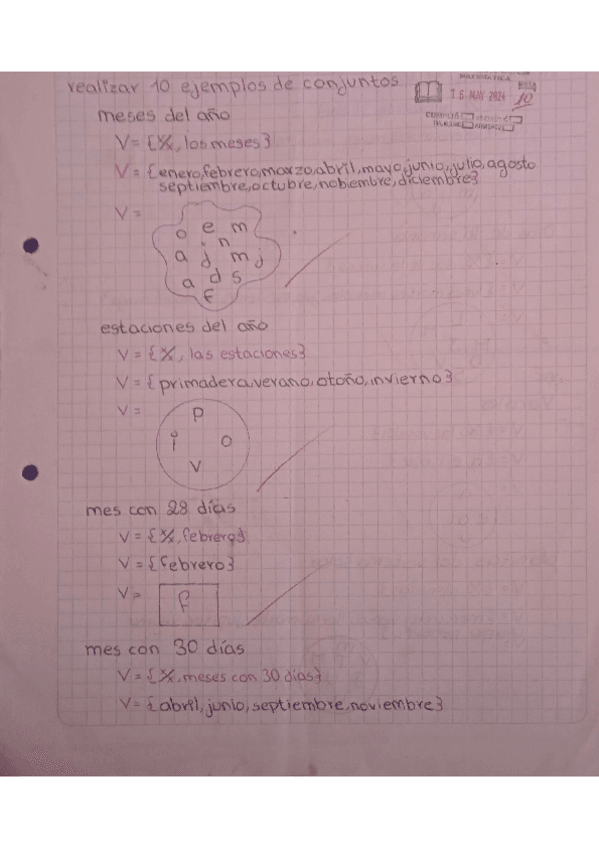 realizar 10 ejemplos de conjuntos
MATEMATICA
16 MAY 2024
10
meses del año
V = {X/x, los meses}
V = {enero, febrero, marzo, abril, mayo, junio, julio, agosto
septiembre, octubre, nobiembre, diciembre}
V =
o e m
i n
a j m j
a d s
f
estaciones del año
V = {X/x, las estaciones}
V = {primadera, verano, otoño, invierno}
V =
p
i o
v
mes con 28 días
V = {X/x, febrero}
V = {febrero}
V =
f
mes con 30 días
V = {X/x, meses con 30 días}
V = {abril, junio, septiembre, noviembre}